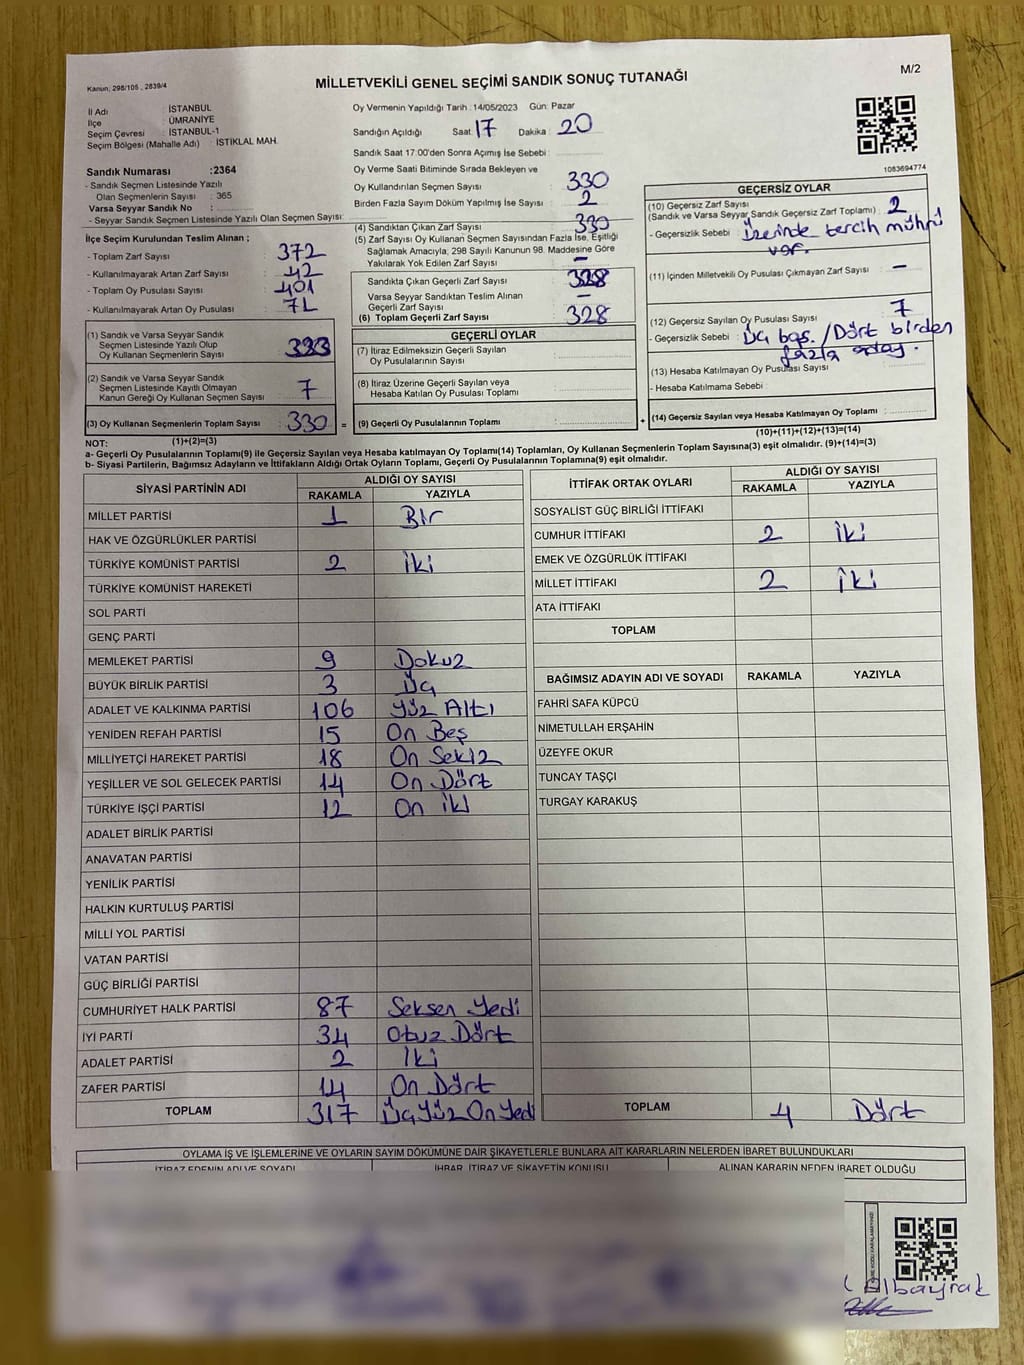 Kanun, 298/105 , 2839/4
MİLLETVEKİLİ GENEL SEÇİMİ SANDIK SONUÇ TUTANAĞI
M/2
İl Adı : İSTANBUL
İlçe : ÜMRANİYE
Seçim Çevresi : İSTANBUL-1
Seçim Bölgesi (Mahalle Adı) : İSTİKLAL MAH.
Sandık Numarası :2364
- Sandık Seçmen Listesinde Yazılı
Olan Seçmenlerin Sayısı : 365
Varsa Seyyar Sandık No :
- Seyyar Sandık Seçmen Listesinde Yazılı Olan Seçmen Sayısı:
İlçe Seçim Kurulundan Teslim Alınan ;
- Toplam Zarf Sayısı : 372
- Kullanılmayarak Artan Zarf Sayısı : 42
- Toplam Oy Pusulası Sayısı : 401
- Kullanılmayarak Artan Oy Pusulası : 71
(1) Sandık ve Varsa Seyyar Sandık
Seçmen Listesinde Yazılı Olup
Oy Kullanan Seçmenlerin Sayısı : 323
(2) Sandık ve Varsa Seyyar Sandık
Seçmen Listesinde Kayıtlı Olmayan
Kanun Gereği Oy Kullanan Seçmen Sayısı : 7
(3) Oy Kullanan Seçmenlerin Toplam Sayısı : 330
Oy Vermenin Yapıldığı Tarih : 14/05/2023 Gün: Pazar
Sandığın Açıldığı Saat : 17 Dakika : 20
Sandık Saat 17:00'den Sonra Açımış İse Sebebi :
Oy Verme Saati Bitiminde Sırada Bekleyen ve
Oy Kullandırılan Seçmen Sayısı : 330
Birden Fazla Sayım Döküm Yapılmış İse Sayısı : 2
(4) Sandıktan Çıkan Zarf Sayısı : 330
(5) Zarf Sayısı Oy Kullanan Seçmen Sayısından Fazla İse, Eşitliği
Sağlamak Amacıyla, 298 Sayılı Kanunun 98. Maddesine Göre
Yakılarak Yok Edilen Zarf Sayısı : –
Sandıkta Çıkan Geçerli Zarf Sayısı : 328
Varsa Seyyar Sandıktan Teslim Alınan
Geçerli Zarf Sayısı : –
(6) Toplam Geçerli Zarf Sayısı : 328
GEÇERLİ OYLAR
(7) İtiraz Edilmeksizin Geçerli Sayılan
Oy Pusulasının Sayısı :
(8) İtiraz Üzerine Geçerli Sayılan veya
Hesaba Katılan Oy Pusulası Toplamı :
= (9) Geçerli Oy Pusulalarının Toplamı :
1083694774
GEÇERSİZ OYLAR
(10) Geçersiz Zarf Sayısı
(Sandık ve Varsa Seyyar Sandık Geçersiz Zarf Toplamı) : 2
- Geçersizlik Sebebi : Üzerinde tercih mührü
var.
(11) İçinden Milletvekili Oy Pusulası Çıkmayan Zarf Sayısı : –
(12) Geçersiz Sayılan Oy Pusulası Sayısı : 7
- Geçersizlik Sebebi : Üç boş. / Dört birden
fazla
(13) Hesaba Katılmayan Oy Pusulası Sayısı :
- Hesaba Katılmama Sebebi :
+ (14) Geçersiz Sayılan veya Hesaba Katılmayan Oy Toplamı :
NOT: (1)+(2)=(3) (10)+(11)+(12)+(13)=(14)
a- Geçerli Oy Pusulalarının Toplamı(9) ile Geçersiz Sayılan veya Hesaba katılmayan Oy Toplamı(14) Toplamları, Oy Kullanan Seçmenlerin Toplam Sayısına(3) eşit olmalıdır. (9)+(14)=(3)
b- Siyasi Partilerin, Bağımsız Adayların ve İttifakların Aldığı Ortak Oyların Toplamı, Geçerli Oy Pusulalarının Toplamına(9) eşit olmalıdır.
SİYASİ PARTİNİN ADI ALDIĞI OY SAYISI
RAKAMLA YAZIYLA
MİLLET PARTİSİ 1 Bir
HAK VE ÖZGÜRLÜKLER PARTİSİ
TÜRKİYE KOMÜNİST PARTİSİ 2 İki
TÜRKİYE KOMÜNİST HAREKETİ
SOL PARTİ
GENÇ PARTİ
MEMLEKET PARTİSİ 9 Dokuz
BÜYÜK BİRLİK PARTİSİ 3 Üç
ADALET VE KALKINMA PARTİSİ 106 Yüz Altı
YENİDEN REFAH PARTİSİ 15 On Beş
MİLLİYETÇİ HAREKET PARTİSİ 18 On Sekiz
YEŞİLLER VE SOL GELECEK PARTİSİ 14 On Dört
TÜRKİYE İŞÇİ PARTİSİ 12 On iki
ADALET BİRLİK PARTİSİ
ANAVATAN PARTİSİ
YENİLİK PARTİSİ
HALKIN KURTULUŞ PARTİSİ
MİLLİ YOL PARTİSİ
VATAN PARTİSİ
GÜÇ BİRLİĞİ PARTİSİ
CUMHURİYET HALK PARTİSİ 87 Seksen Yedi
İYİ PARTİ 34 Otuz Dört
ADALET PARTİSİ 2 İki
ZAFER PARTİSİ 14 On Dört
TOPLAM 317 Üç Yüz On Yedi
İTTİFAK ORTAK OYLARI ALDIĞI OY SAYISI
RAKAMLA YAZIYLA
SOSYALİST GÜÇ BİRLİĞİ İTTİFAKI
CUMHUR İTTİFAKI 2 İki
EMEK VE ÖZGÜRLÜK İTTİFAKI
MİLLET İTTİFAKI 2 İki
ATA İTTİFAKI
TOPLAM
BAĞIMSIZ ADAYIN ADI VE SOYADI RAKAMLA YAZIYLA
FAHRİ SAFA KÜPCÜ
NİMETULLAH ERŞAHİN
ÜZEYFE OKUR
TUNCAY TAŞÇI
TURGAY KARAKUŞ
TOPLAM 4 Dört
OYLAMA İŞ VE İŞLEMLERİNE VE OYLARIN SAYIM DÖKÜMÜNE DAİR ŞİKAYETLERLE BUNLARA AİT KARARLARIN NELERDEN İBARET BULUNDUKLARI
İTİRAZ EDENİN ADI VE SOYADI İHBAR, İTİRAZ VE ŞİKAYETİN KONUSU ALINAN KARARIN NEDEN İBARET OLDUĞU
Albayrak